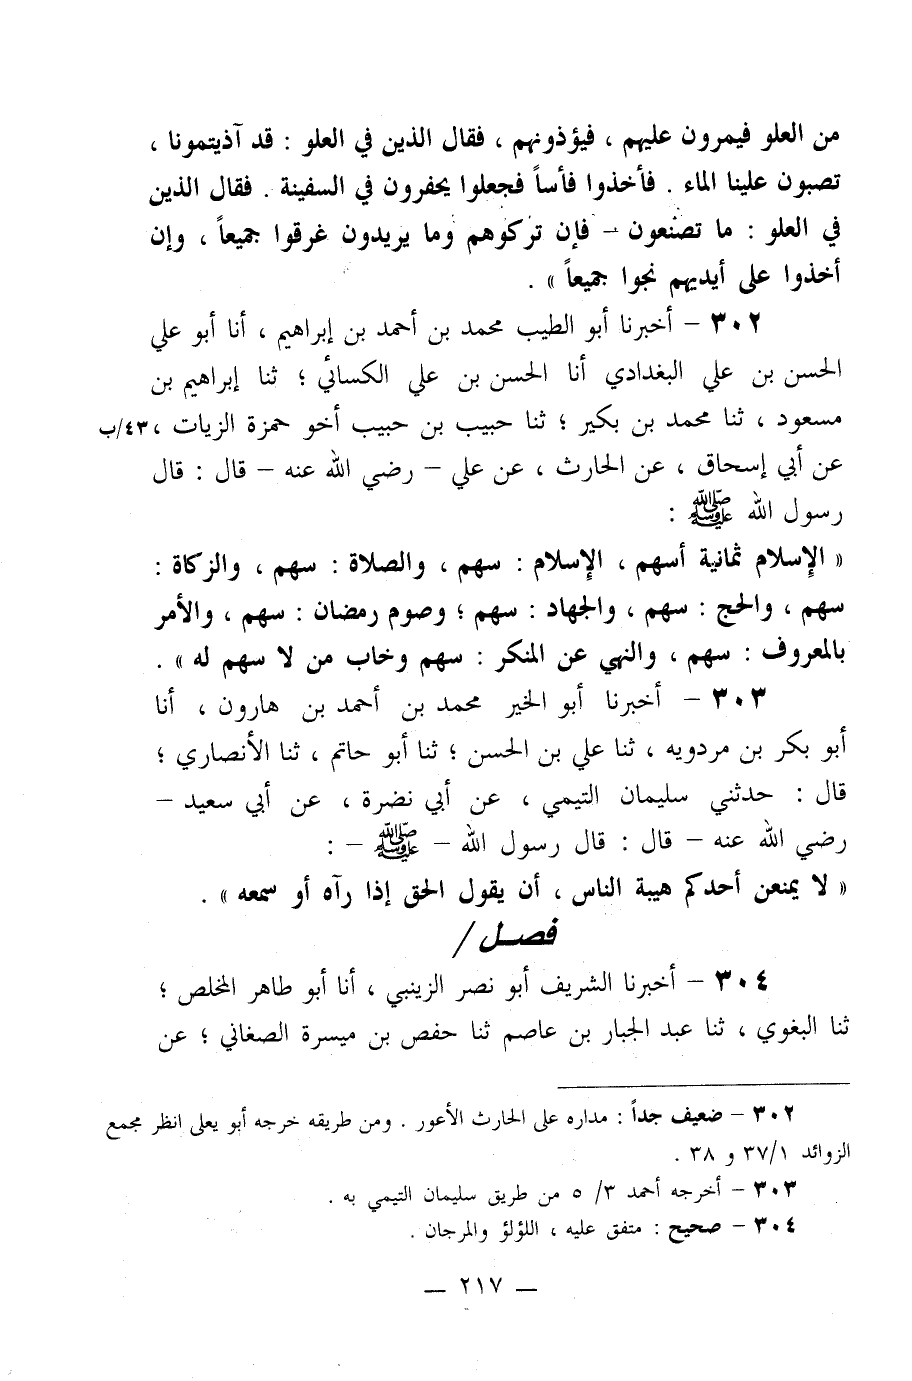 من العلو فيمرون عليهم ، فيؤذونهم ، فقال الذين في العلو : قد آذيتمونا ،
تصبون علينا الماء . فأخذوا فأساً فجعلوا يحفرون في السفينة . فقال الذين
في العلو : ما تصنعون – فإن تركوهم وما يريدون غرقوا جميعاً ، وإن
أخذوا على أيديهم نجوا جميعاً » .
٣٠٢ – أخبرنا أبو الطيب محمد بن أحمد بن إبراهيم ، أنا أبو علي
الحسن بن علي البغدادي أنا الحسن بن علي الكسائي ؛ ثنا إبراهيم بن
مسعود ، ثنا محمد بن بكير ؛ ثنا حبيب بن حبيب أخو حمزة الزيات ، ٤٣/ب
عن أبي إسحاق ، عن الحارث ، عن علي – رضي الله عنه – قال : قال
رسول الله ﷺ :
« الإسلام ثمانية أسهم ، الإسلام : سهم ، والصلاة : سهم ، والزكاة :
سهم ، والحج : سهم ، والجهاد : سهم ؛ وصوم رمضان : سهم ، والأمر
بالمعروف : سهم ، والنهي عن المنكر : سهم وخاب من لا سهم له » .
٣٠٣ – أخبرنا أبو الخير محمد بن أحمد بن هارون ، أنا
أبو بكر بن مردويه ، ثنا علي بن الحسن ؛ ثنا أبو حاتم ، ثنا الأنصاري ؛
قال : حدثني سليمان التيمي ، عن أبي نضرة ، عن أبي سعيد –
رضي الله عنه – قال : قال رسول الله – ﷺ – :
« لا يمنعن أحدكم هيبة الناس ، أن يقول الحق إذا رآه أو سمعه » .
فصل /
٣٠٤ – أخبرنا الشريف أبو نصر الزينبي ، أنا أبو طاهر المخلص ؛
ثنا البغوي ، ثنا عبد الجبار بن عاصم ثنا حفص بن ميسرة الصغاني ؛ عن
٣٠٢ – ضعيف جداً : مداره على الحارث الأعور . ومن طريقه خرجه أبو يعلى انظر مجمع
الزوائد ٣٧/١ و ٣٨ .
٣٠٣ – أخرجه أحمد ٣/ ٥ من طريق سليمان التيمي به .
٣٠٤ – صحيح : متفق عليه ، اللؤلؤ والمرجان .
— ٢١٧ —